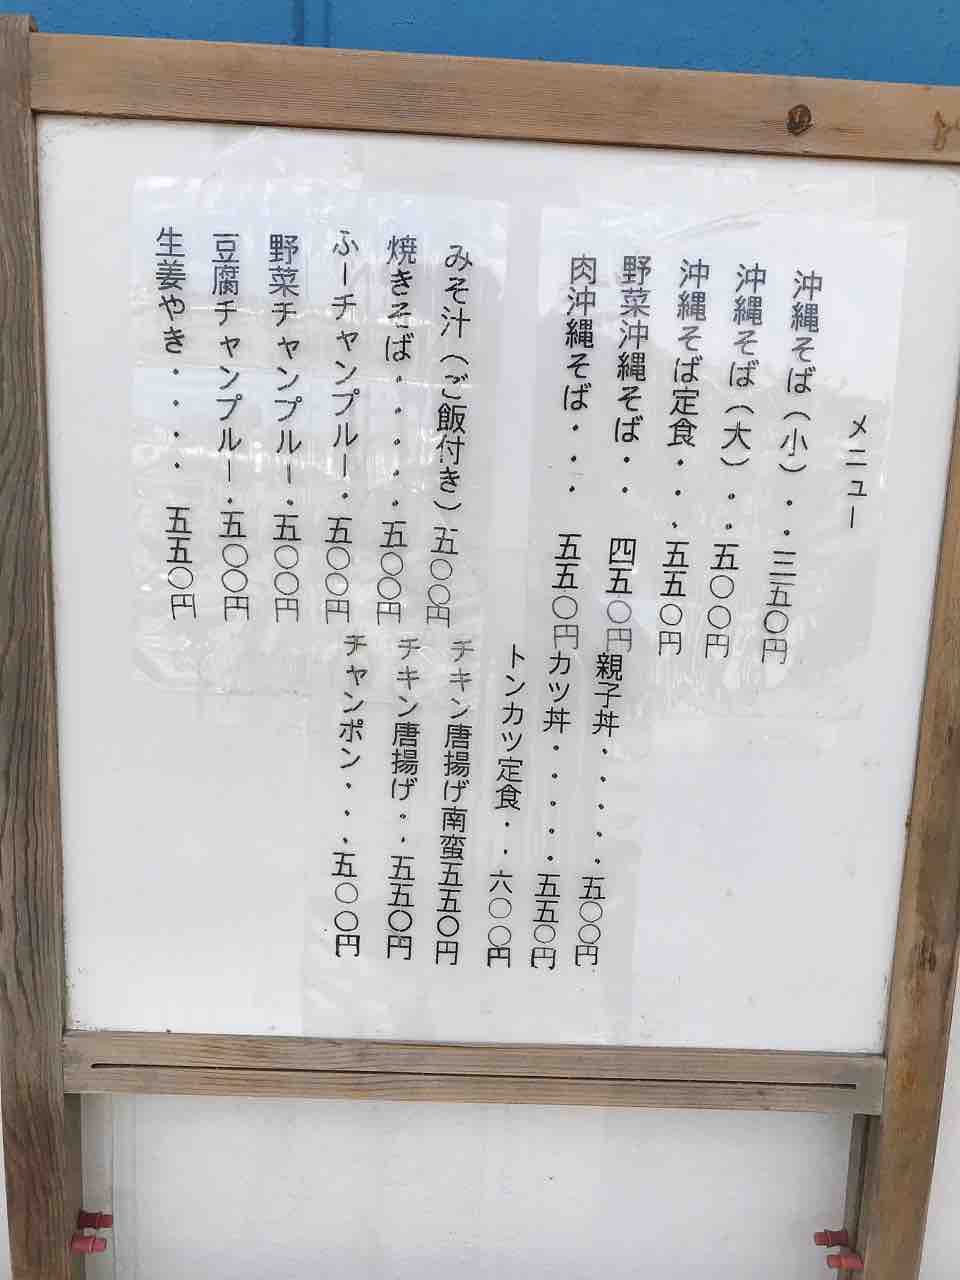 メニュー
沖縄そば(小)・・三五〇円
沖縄そば(大)・・五〇〇円
沖縄そば定食・・・五五〇円
野菜沖縄そば・・四五〇円
肉沖縄そば・・・五五〇円
みそ汁(ご飯付き)五〇〇円
焼きそば・・・・・五〇〇円
ふーチャンプルー・五〇〇円
野菜チャンプルー・五〇〇円
豆腐チャンプルー・五〇〇円
生姜やき・・・・五五〇円
親子丼・・・・・五〇〇円
カツ丼・・・・・五五〇円
トンカツ定食・・六〇〇円
チキン唐揚げ南蛮五五〇円
チキン唐揚げ・・五五〇円
チャンポン・・・五〇〇円